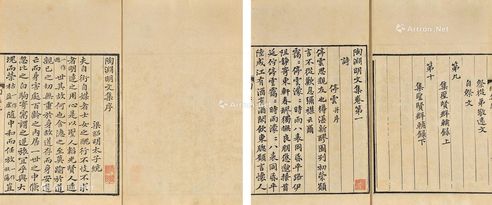 陶淵明文集序
梁昭明太子統
夫自衒自媒者士女之醜行不忮不求
者明達之用心是以聖人韜光賢人遁
世其故何也含德之至莫踰於道
親己之切無重於身故道存而身安道
亡而身害處百齡之內居一世之中倏
忽比之白駒寄寓謂之逆旅宜乎與大
塊而榮枯隨中和而任放豈
祭從弟敬遠文
自祭文
第九
集聖賢群輔錄上
第十
集聖賢群輔錄下
陶淵明文集卷第一
詩
停雲 并序
停雲思親友也罇湛新醪園列初榮願
言不從歎息彌襟云爾
靄〻停雲濛〻時雨八表同昏平路伊
阻靜寄東軒春醪獨撫良朋悠邈搔首
延佇停雲靄〻時雨濛〻八表同昏平
陸成江有酒有酒閒飲東窗願言懷人
Artron.Net